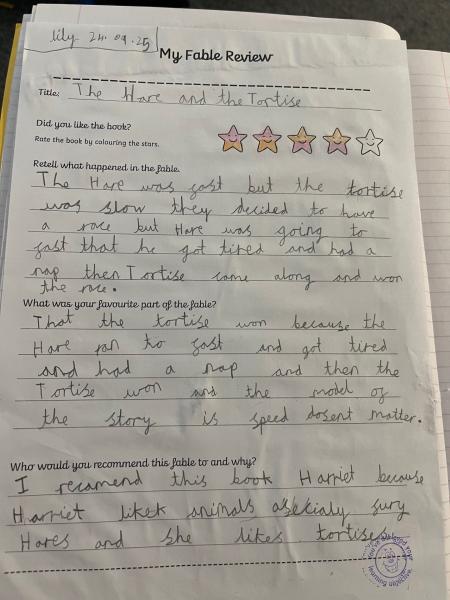 lily 24.09.25
My Fable Review
Title: The Hare and the Tortise
Did you like the book?
Rate the book by colouring the stars.
Retell what happened in the fable.
The Hare was fast but the tortise
was slow they decided to have
a race but Hare was going to
fast that he got tired and had a
nap then Tortise came along and won
the race.
What was your favourite part of the fable?
That the tortise won because the
Hare ran to fast and got tired
and had a nap and then the
Tortise won and the model of
the story is speed dosent matter.
Who would you recommend this fable to and why?
I recamend this book Harriet because
Harriet likek animals asecialy fury
Hares and she likes tortises
You've achieved your learning objective.